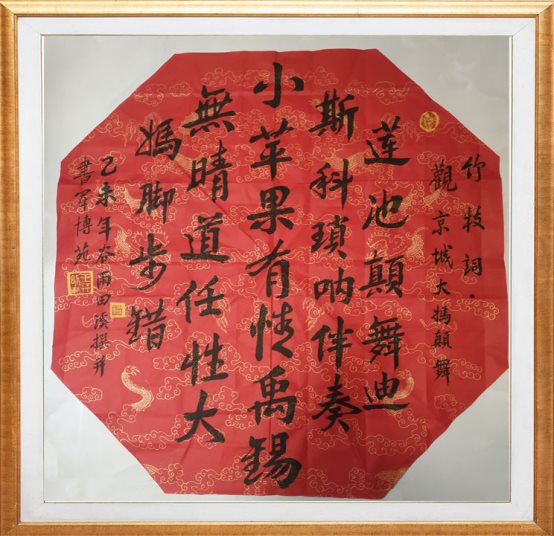 竹枝詞·
觀京城大媽顛舞
莲池顛舞迪
斯科琐呐伴奏
小苹果有情禹錫
無晴道任性大
媽脚步錯
乙未年谷雨田溪撰并
書军博苑